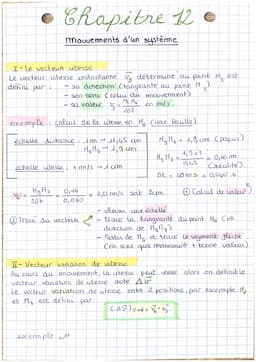 Chapitre 12
Mouvements d'un système
I - Le vecteur vitesse
Le vecteur vitesse instantané V⃗₃ déterminé au point M₃ est
défini par : - sa direction (tangente au point M₃)
- son sens (celui du mouvement)
- sa valeur en m/s.
exemple : calcul de la vitesse en M₃ (voir feuille)
échelle distance :
échelle vitesse : 1 m/s → 1 cm
(papier)
= 0,16 m
(réalité)
Δt = = 0,080 s.
= 2,0 m/s soit 2cm.
① Calcul de valeur
② Tracé du vecteur
- choisir une échelle
- tracer la tangente du point M₃ (via
direction de
tracer le segment fléché
(m sens que mouvement + bonne valeur)
II - Vecteur variation de vitesse
Au cours du mouvement, la vitesse peut varier alors on définit le
vecteur variation de vitesse noté ΔV⃗
Le vecteur variation de vitesse entre 2 positions, par exemple M₂
et M₃ est défini par
exemple